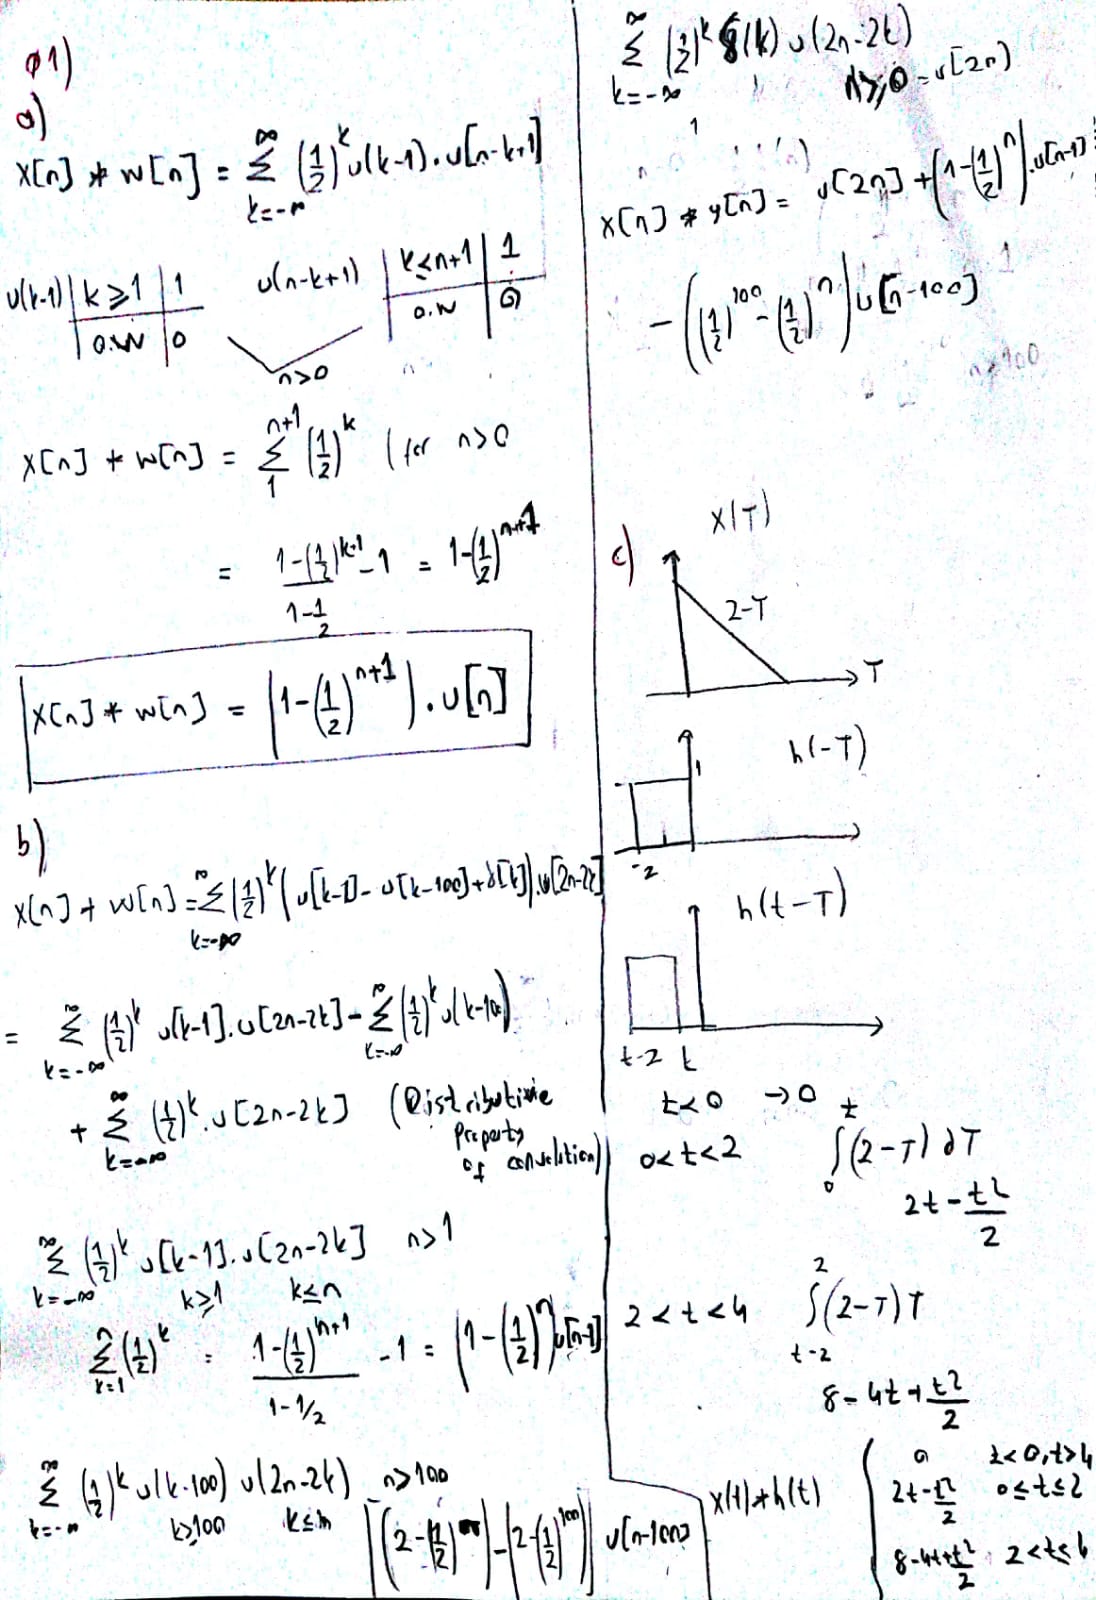 Q1)
a)
x[n] * w[n] = ∑_{k=-∞}^{∞} (1/2)^k u(k-1).u[n-k+1]
u(k-1) | k≥1 | 1
o.w | 0
u(n-k+1) | k≤n+1 | 1
o.w | 0
n>0
x[n] * w[n] = ∑_{1}^{n+1} (1/2)^k (for n>0
= (1-(1/2)^{k+1})/(1-1/2) -1 = 1-(1/2)^{n+1}
x[n] * w[n] = (1-(1/2)^{n+1}).u[n]
b)
x[n] * w[n] = ∑_{k=-∞}^{∞} (1/2)^k (u[k-1]-u[k-100]+δ[k]).u[2n-2k]
= ∑_{k=-∞}^{∞} (1/2)^k u[k-1].u[2n-2k] - ∑_{k=-∞}^{∞} (1/2)^k u(k-100)
+ ∑_{k=-∞}^{∞} (1/2)^k.u[2n-2k] (Distributivie
Property
of convolution)
∑_{k=-∞}^{∞} (1/2)^k u[k-1].u[2n-2k] n>1
k≥1 k≤n
∑_{k=1}^{n} (1/2)^k = (1-(1/2)^{n+1})/(1-1/2) -1 = (1-(1/2)^n)u[n-1]
∑_{k=-∞}^{∞} (1/2)^k u(k-100) u(2n-2k) n>100
k≥100 k≤n
[(2-(1/2)^n)-(2-(1/2)^{100})] u[n-100]
∑_{k=-∞}^{∞} (1/2)^k δ(k) u(2n-2k)
n≥0 = u[2n]
1
x[n] * y[n] = u[2n] + (1-(1/2)^n).u[n-1]
- ((1/2)^{100} - (1/2)^n) u[n-100]
n≥100
c)
x(T)
2-T
T
h(-T)
1
-2
h(t-T)
t-2 t
t<0 → 0
0<t<2 ∫_{0}^{t} (2-T) dT
2t - t²/2
2<t<4 ∫_{t-2}^{2} (2-T) T
8-4t+t²/2
x(t)*h(t) { 0 t<0, t>4
2t-t²/2 0≤t≤2
8-4t+t²/2 2<t≤4